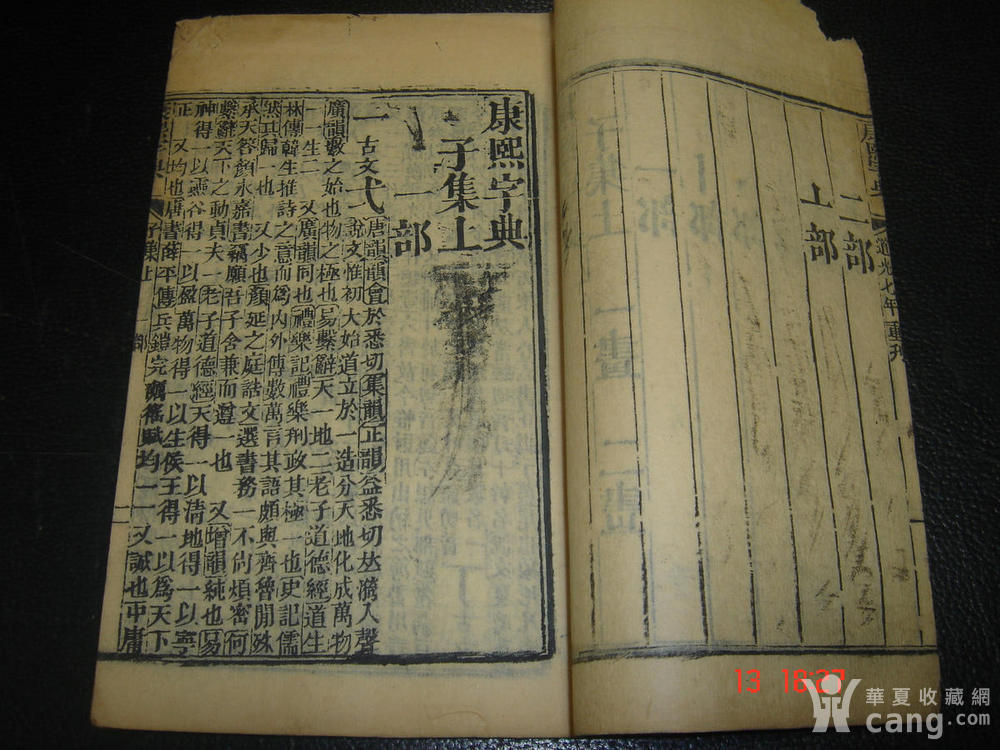 康熙字典 道光七年重刊
二部
亠部
康熙字典
子集上
一部
一 古文弌
唐韻韻會於悉切集韻正韻益悉切𠀤漪入聲
說文惟初大始道立於一造分天地化成萬物
廣韻數之始也物之極也易繫辭天一地二老子道德經道生
一一生二 又廣韻同也禮樂記禮樂刑政其極一也史記儒
林傳韓生推詩之意而爲內外傳數萬言其語頗與齊魯閒殊
然其歸一也 又少也顏延之庭誥文選書務一不尚煩密何
承天答顏永嘉書竊願吾子舍兼而遵一也 又增韻純也易
繫辭天下之動貞夫一老子道德經天得一以清地得一以寧
神得一以靈谷得一以盈萬物得一以生侯王得一以爲天下
正 又均也唐書薛平傳兵鎧完礪徭賦均一 又誠也中庸
子集上 一部 一
13 18:27
華夏收藏網
cang.com